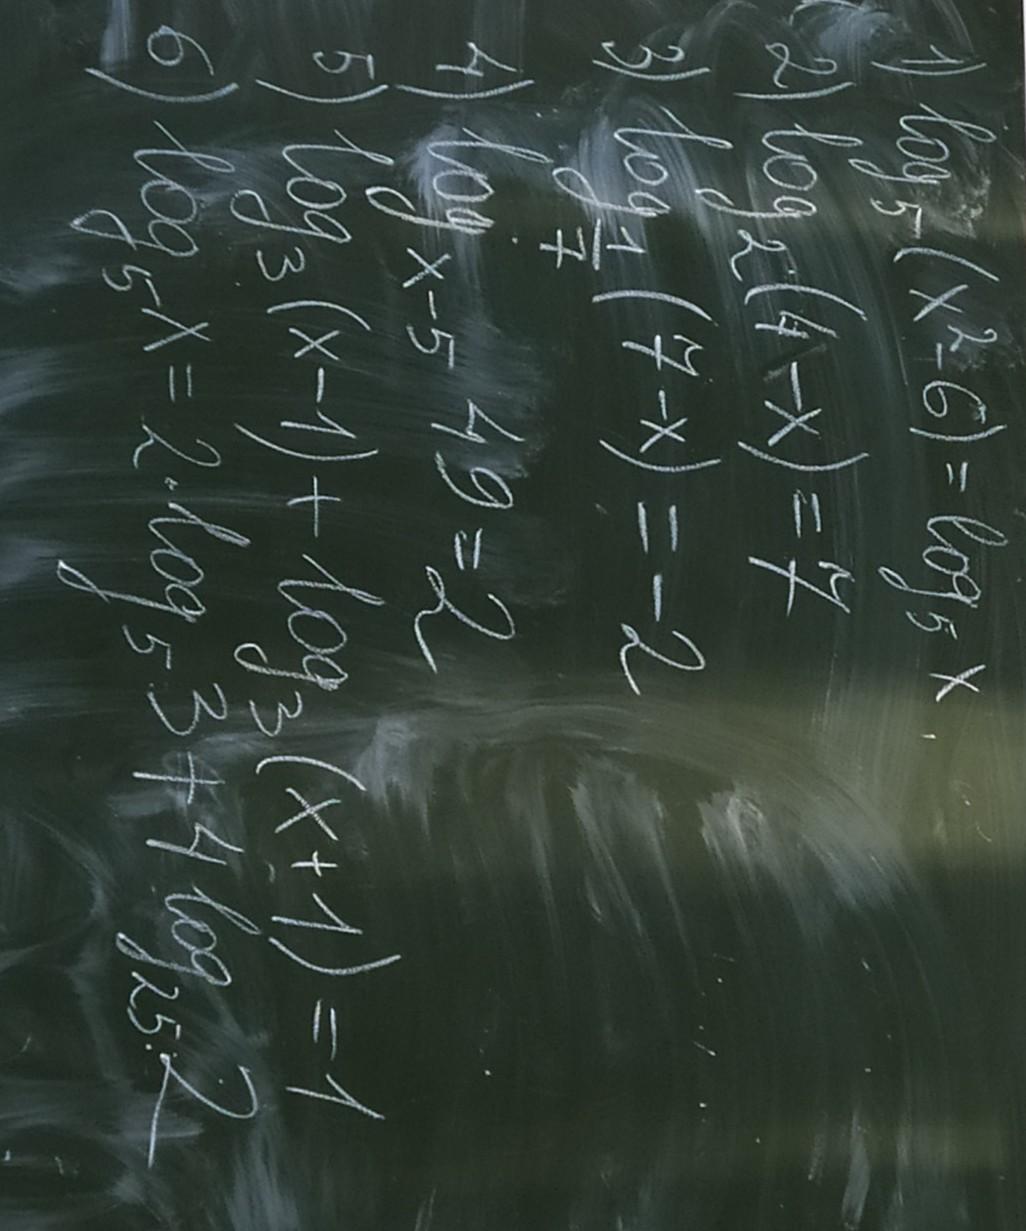 1) log₅(x²-6) = log₅ x
2) log₂(4-x) = 7
3) log_{1/7}(7-x) = -2
4) log_{x-5} 49 = 2
5) log₃(x-1) + log₃(x+1) = 1
6) log₅ x = 2·log₅ 3 + 4 log₂₅ 2